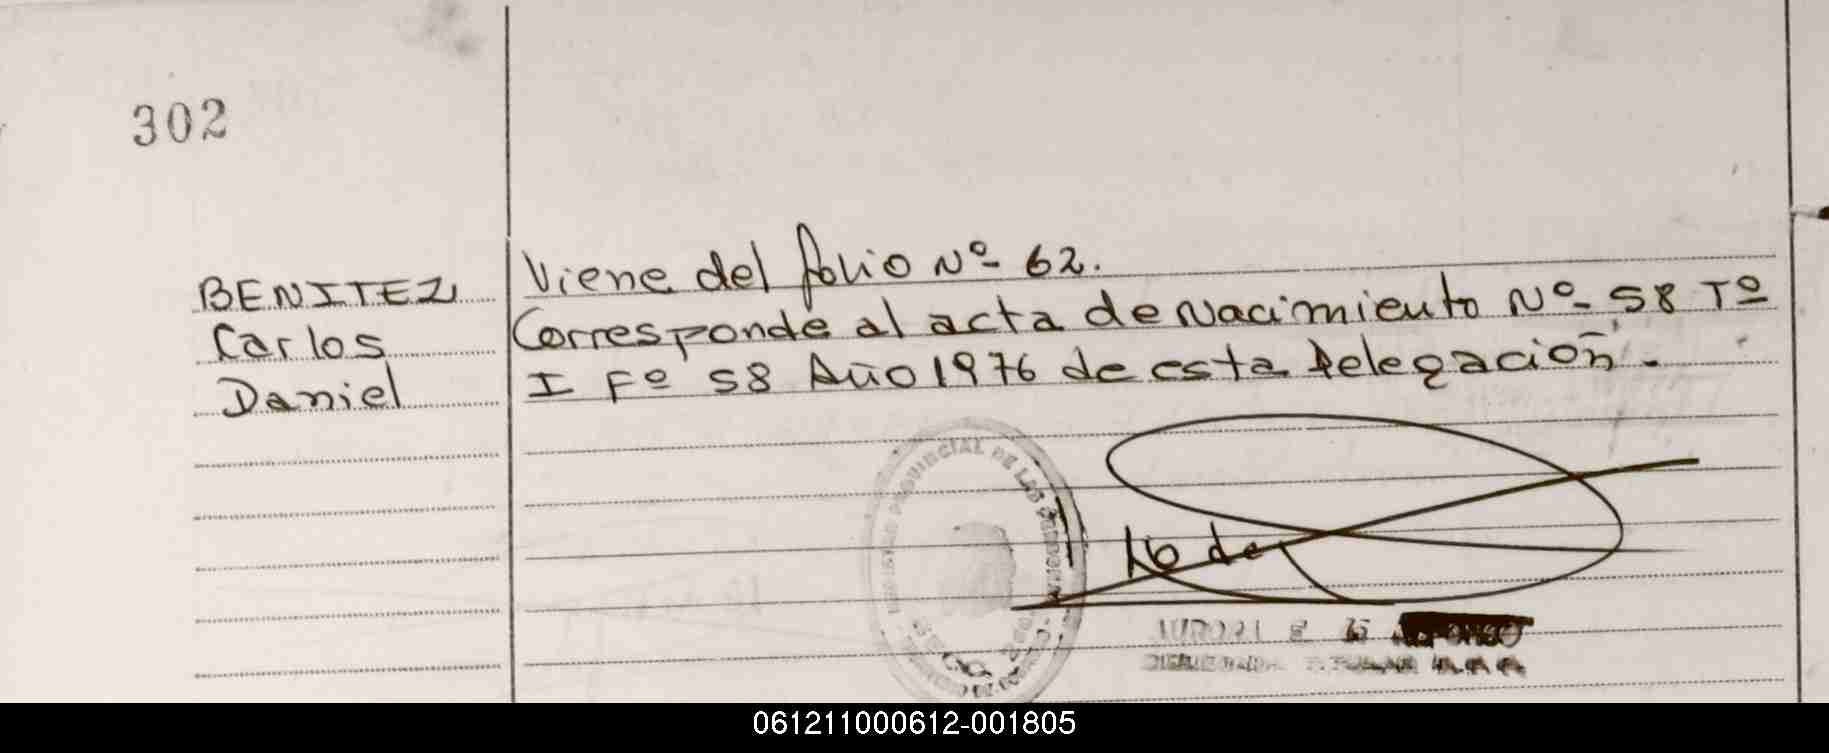 302
BENITEZ
Carlos
Daniel
Viene del folio Nº 62.
Corresponde al acta de Nacimiento Nº 58 Tº
I Fº 58 Año 1976 de esta Delegación.
PROVINCIAL DE LAS PERSONAS
16 de
061211000612-001805